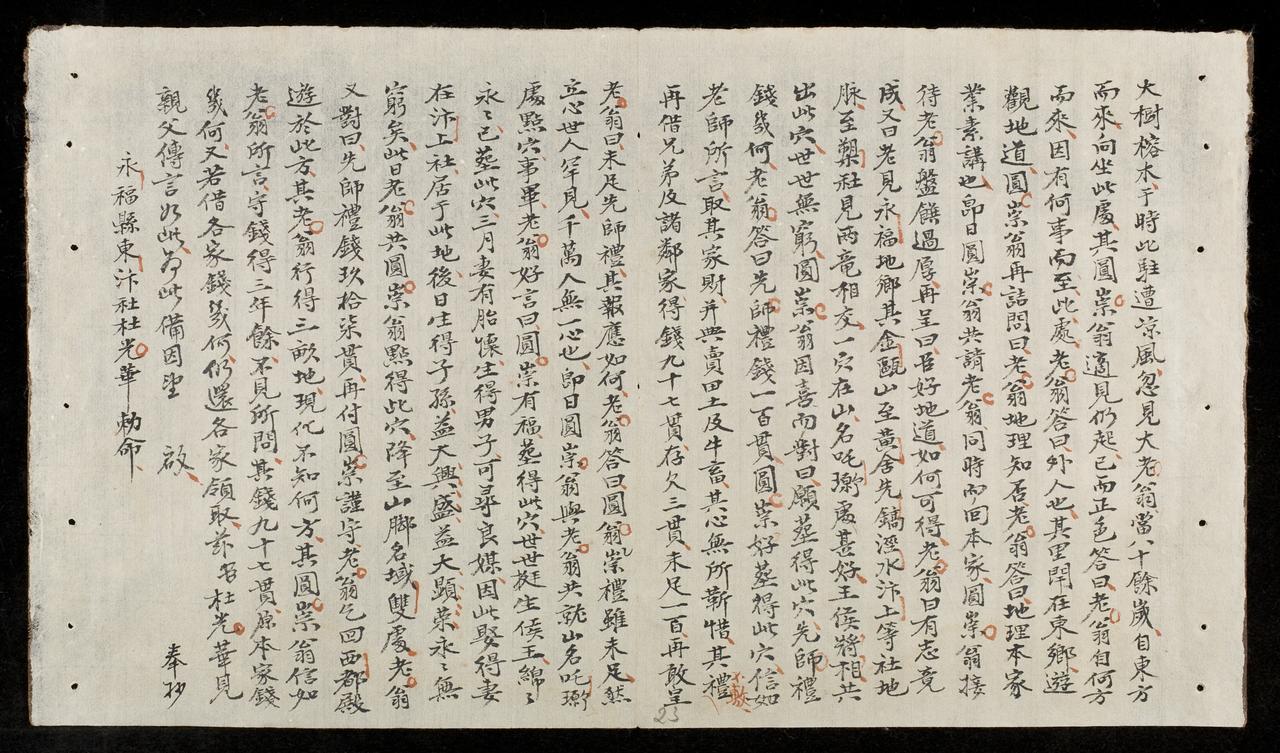 大樹榕木于時此駐遭凉風忽見大老翁當八十餘歲自東方
而來向坐此處其圓崇翁適見仍起已而正色答曰老翁自何方
而來因有何事而至此處老翁答曰外人也其里閈在東鄉遊
觀地道圓崇翁再詰問曰老翁地理知否老翁答曰地理本家
業素講也卽日圓崇翁共請老翁同時而回本家圓崇翁接
待老翁盤饌過厚再呈曰吾好地道如何可得老翁曰有志竟
成又曰老見永福地鄉其金甌山至黄舍先鎬涇水汴上等社地
脉至槊社見两竜相交一穴在山名吒𤾓處甚好王侯將相共
出此穴世世無窮圓崇翁因喜而對曰願塟得此穴先師禮
錢幾何老翁答曰先師禮錢一百貫圓崇好塟得此穴信如
老師所言取其家財并典賣田土及牛畜其心無所靳惜其禮
不敷
再借兄弟及諸鄰家得錢九十七貫存欠三貫未足一百再敢呈
老翁曰未足先師禮其報應如何老翁答曰圓翁崇禮雖未足然
立心世人罕見千萬人無一心也卽日圓崇翁與老翁共就山名吒
處點穴事畢老翁好言曰圓崇有福塟得此穴世世挺生侯王綿〻
永〻已塟此穴三月妻有胎懷生得男子可尋良媒因此娶得妻
在汴上社居于此地後日生得子孫益大興盛益大顯荣永〻無
窮矣此日老翁共圓崇翁點得此穴降至山脚名域雙處老翁
又對曰先師禮錢玖拾柒貫再付圓崇謹守老翁乞回西都殿
遊於此方其老翁行得三畝地現化不知何方其圓崇翁信如
老翁所言守錢得三年餘不見所問其錢九十七貫原本家錢
幾何又若借各家錢幾何仍還各家領取玆吾杜光華見
親父傳言如此爲此備因望 啟
永福縣東汴社杜光華勑命 奉抄
23